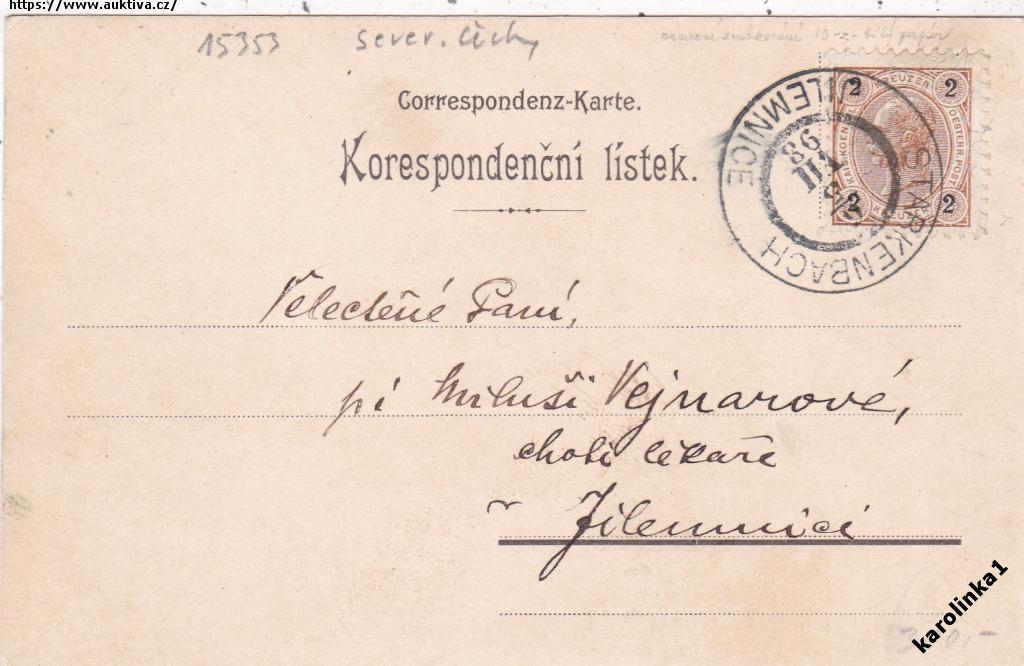 https://www.auktiva.cz/
15353 sever. Čechy
10-z-bílý papír
Correspondenz-Karte.
Korespondenční lístek.
2 KREUZER 2
KAIS. KOEN. OESTERR. POST.
2 KREUZER 2
STARKENBACH JILEMNICE
98
VII
Velectěné Paní,
pí Miluši Vejnarové,
choti lékaře
v Jilemnici
karolinka1